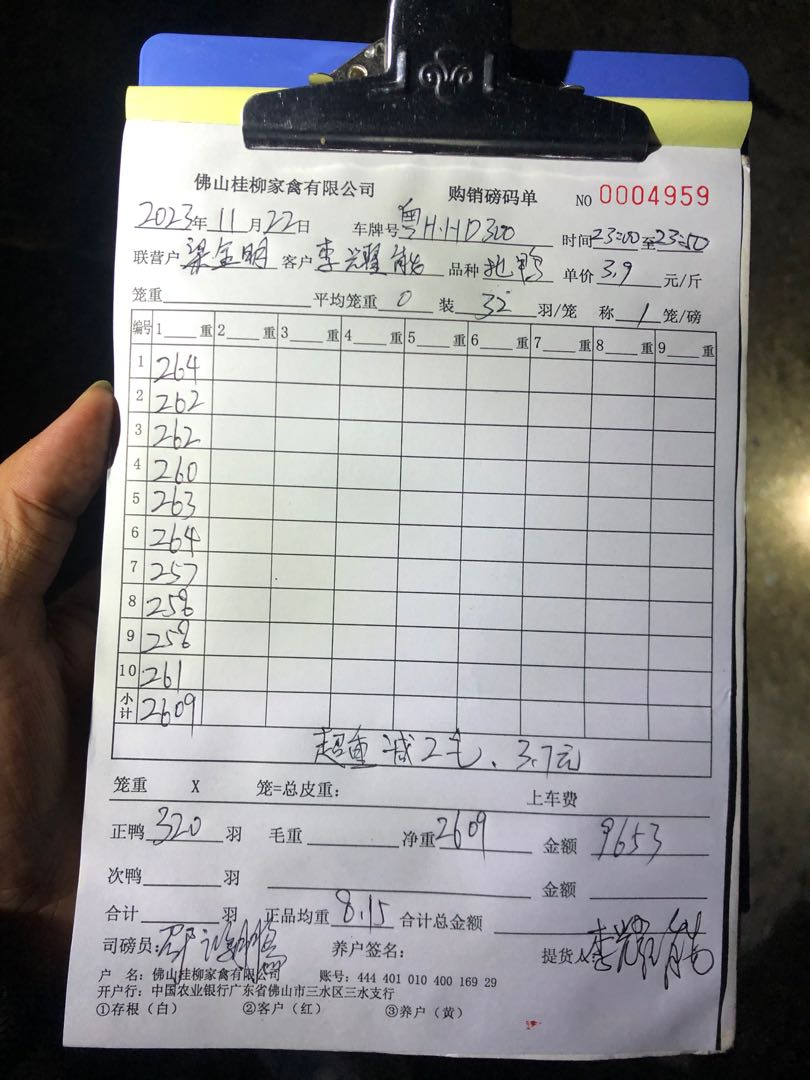 佛山桂柳家禽有限公司 购销磅码单 NO 0004959
2023年 11月22日 车牌号 粤H·HD300 时间23:00至23:50
联营户 梁金明 客户 李耀能 品种 北鸭 单价 3.9 元/斤
笼重 平均笼重 0 装 32 羽/笼 称 1 笼/磅
编号 1 重 2 重 3 重 4 重 5 重 6 重 7 重 8 重 9 重
1 264
2 262
3 262
4 260
5 263
6 264
7 257
8 258
9 258
10 261
小计 2609
超重减2毛、3.7元
笼重 X 笼=总皮重: 上车费
正鸭 320 羽 毛重 净重 2609 金额 9653
次鸭 羽 金额
合计 羽 正品均重 8.15 合计总金额
司磅员: 养户签名: 提货人 李耀能
户 名: 佛山桂柳家禽有限公司 账号: 444 401 010 400 169 29
开户行: 中国农业银行广东省佛山市三水区三水支行
①存根(白) ②客户(红) ③养户(黄)